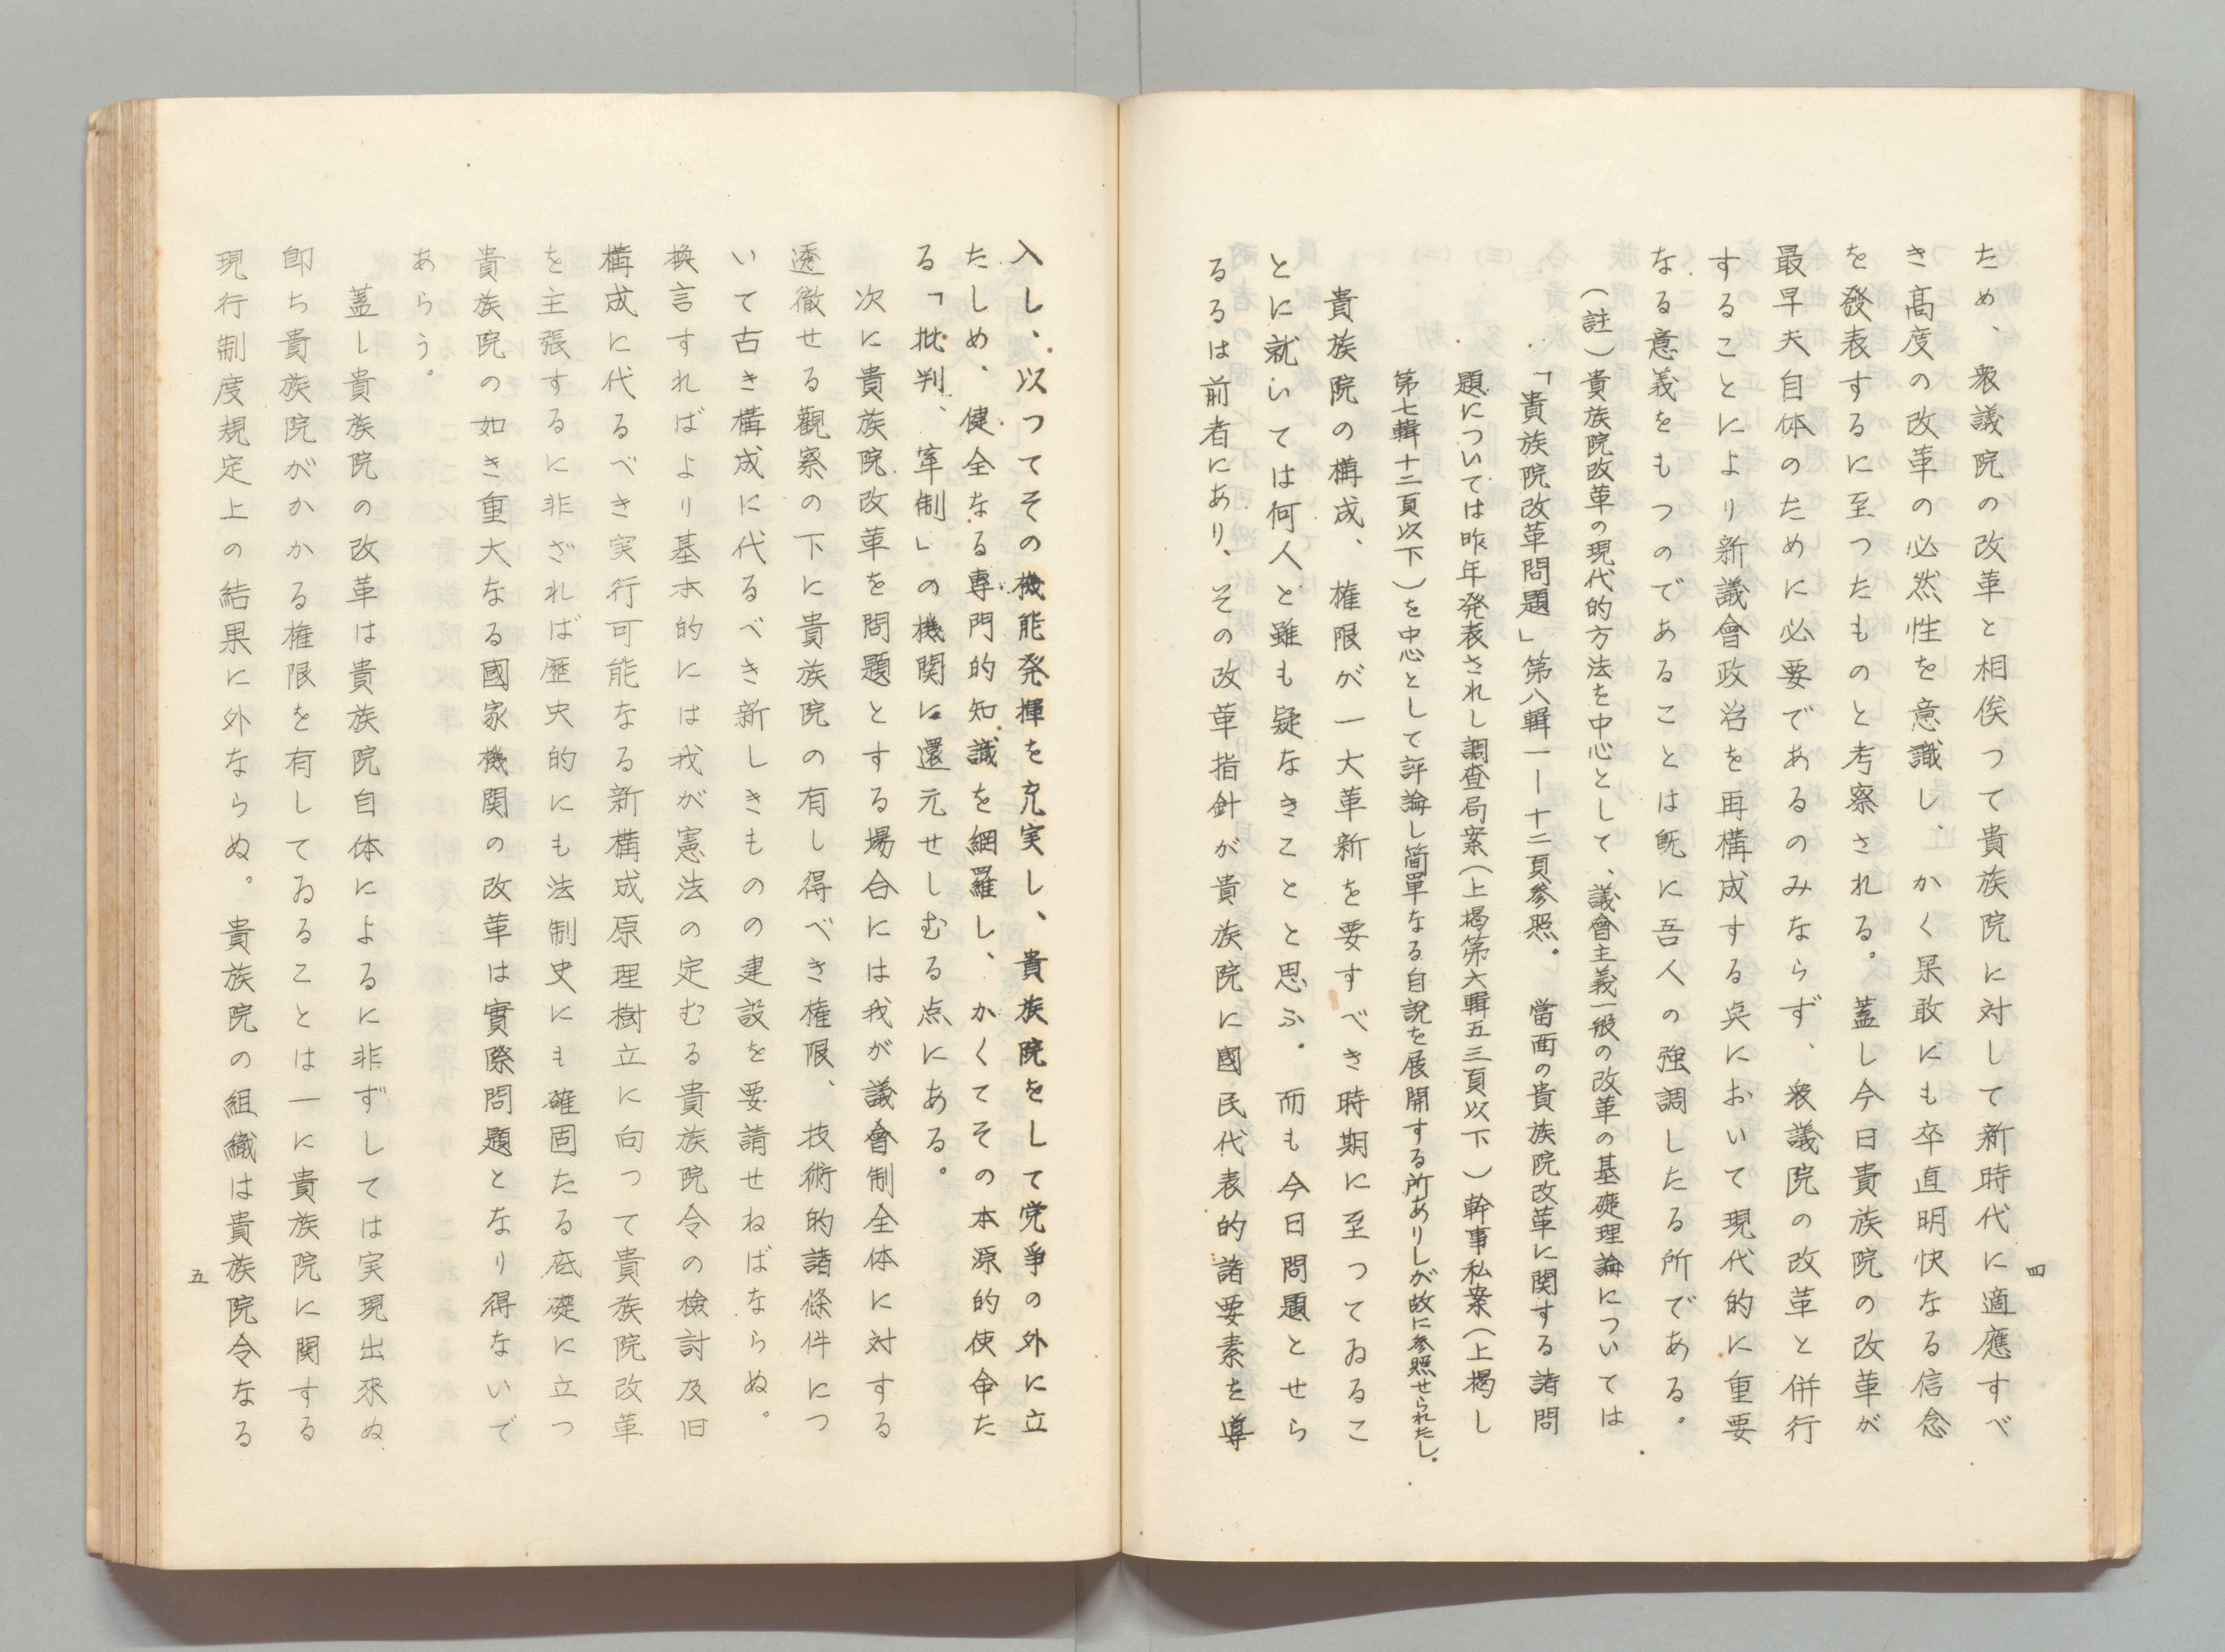 四
ため、衆議院の改革と相俟つて貴族院に対して新時代に適應すべ
き高度の改革の必然性を意識し、かく果敢にも卒直明快なる信念
を發表するに至つたものと考察される。蓋し今日貴族院の改革が
最早夫自体のために必要であるのみならず、衆議院の改革と併行
することにより新議會政治を再構成する奌において現代的に重要
なる意義をもつのであることは既に吾人の強調したる所である。
(註)貴族院改革の現代的方法を中心として、議會主義一般の改革の基礎理論については
「貴族院改革問題」第八輯一―十二頁参照。 當面の貴族院改革に関する諸問
題については昨年発表されし調査局案(上掲第六輯五三頁以下)幹事私案(上掲し
第七輯十二頁以下)を中心として評論し簡單なる自說を展開する所ありしが故に参照せられたし。
貴族院の構成、権限が一大革新を要すべき時期に至つてゐるこ
とに就いては何人と雖も疑なきことと思ふ。而も今日問題とせら
るるは前者にあり、その改革指針が貴族院に國民代表的諸要素を導
入し、以つてその機能発揮を充実し、貴族院をして党爭の外に立
たしめ、健全なる專門的知識を網羅し、かくてその本源的使命た
る「批判、牽制」の機関に還元せしむる点にある。
次に貴族院改革を問題とする場合には我が議會制全体に対する
透徹せる觀察の下に貴族院の有し得べき権限、技術的諸條件につ
いて古き構成に代るべき新しきものの建設を要請せねばならぬ。
換言すればより基本的には我が憲法の定むる貴族院令の検討及旧
構成に代るべき実行可能なる新構成原理樹立に向つて貴族院改革
を主張するに非ざれば歴史的にも法制史にも確固たる底礎に立つ
貴族院の如き重大なる國家機関の改革は實際問題となり得ないで
あらう。
蓋し貴族院の改革は貴族院自体によるに非ずしては実現出來ぬ
卽ち貴族院がかかる権限を有してゐることは一に貴族院に関する
現行制度規定上の結果に外ならぬ。貴族院の組織は貴族院令なる
五